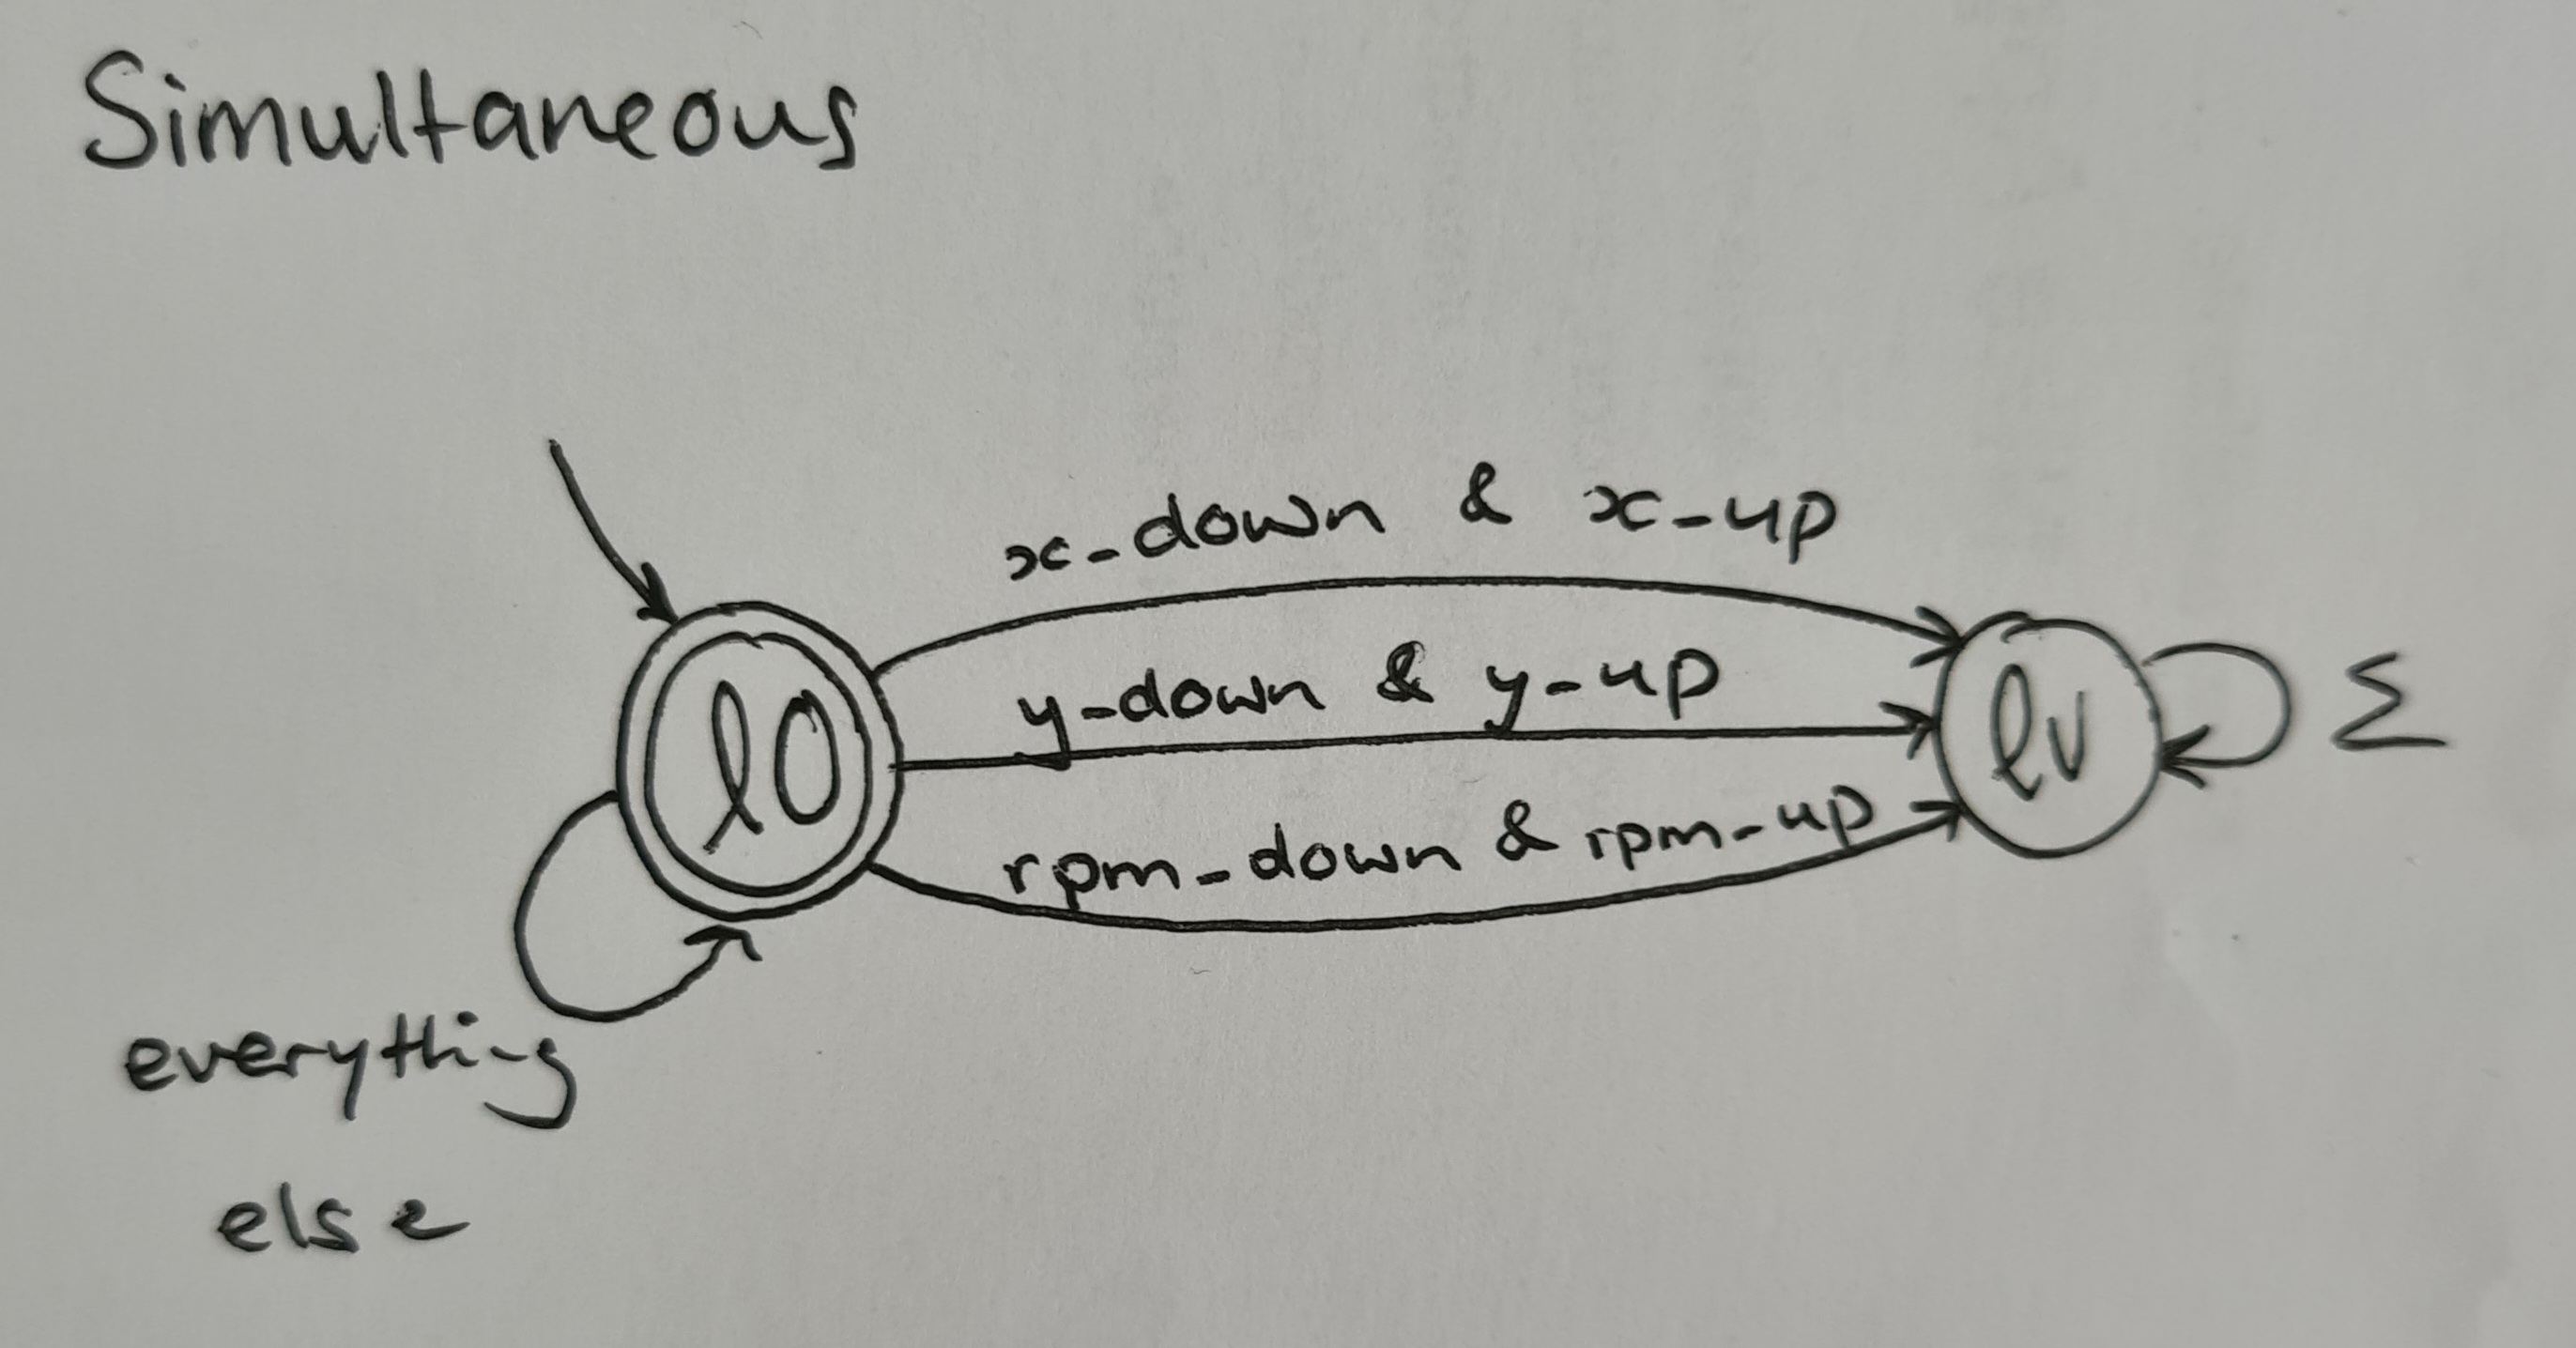 Simultaneous
x-down & x-up
y-down & y-up
l0
lv
Σ
rpm-down & rpm-up
everything
else